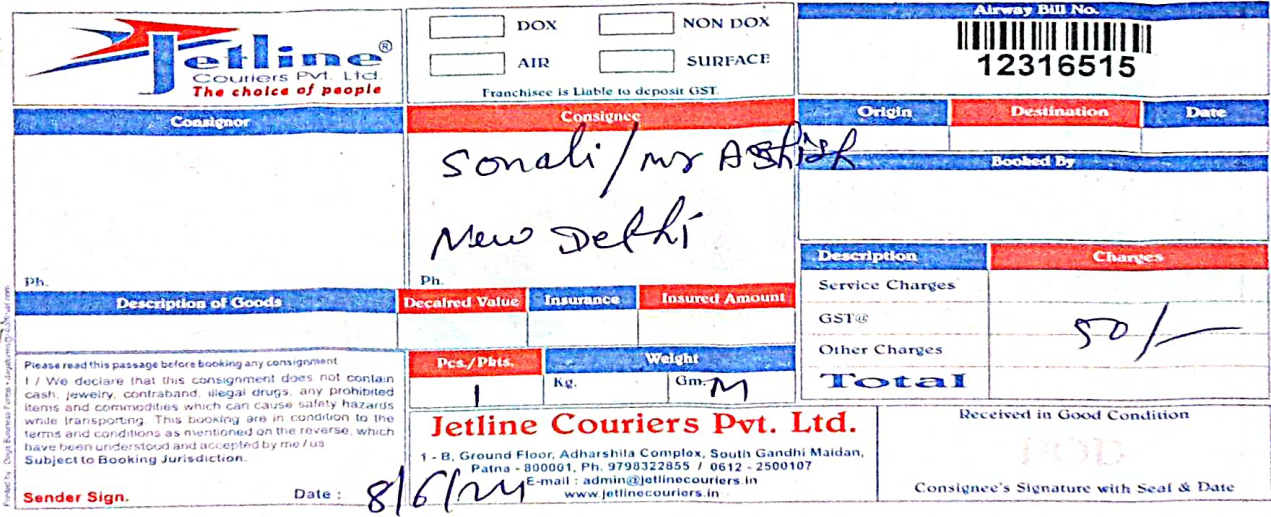 Jetline®
Couriers Pvt. Ltd.
The choice of people
DOX
NON DOX
AIR
SURFACE
Franchisee is Liable to deposit GST.
Airway Bill No.
12316515
Consignor
Ph.
Consignee
Sonali / Mr Ashish
New Delhi
Ph.
Origin
Destination
Date
Booked By
Description
Charges
Service Charges
GST@
50/-
Other Charges
Total
Description of Goods
Decalred Value
Insurance
Insured Amount
Pcs./Pkts.
1
Weight
Kg.
Gm. M
Please read this passage before booking any consignment
I / We declare that this consignment does not contain
cash, jewelry, contraband, illegal drugs, any prohibited
items and commodities which can cause safety hazards
while transporting. This booking are in condition to the
terms and conditions as mentioned on the reverse, which
have been understood and accepted by me / us
Subject to Booking Jurisdiction.
Sender Sign.
Date : 8/6/24
Jetline Couriers Pvt. Ltd.
1 - B, Ground Floor, Adharshila Complex, South Gandhi Maidan,
Patna - 800001, Ph. 9798322855 / 0612 - 2500107
E-mail : admin@jetlinecouriers.in
www.jetlinecouriers.in
Received in Good Condition
POD
Consignee's Signature with Seal & Date